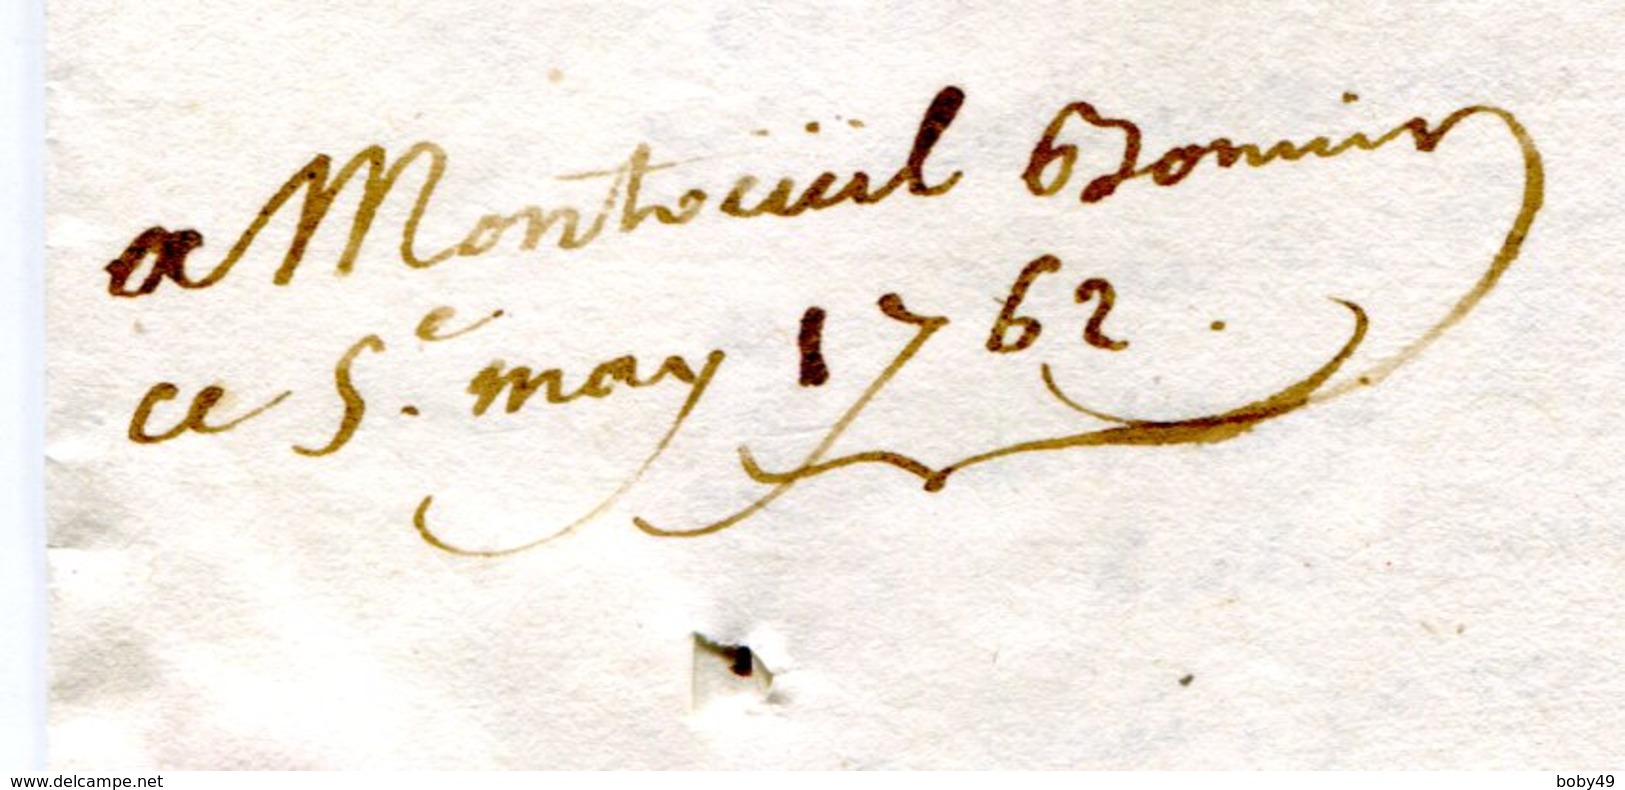 a Montreuil Bonnin
ce 5.e may 1762.
www.delcampe.net
boby49